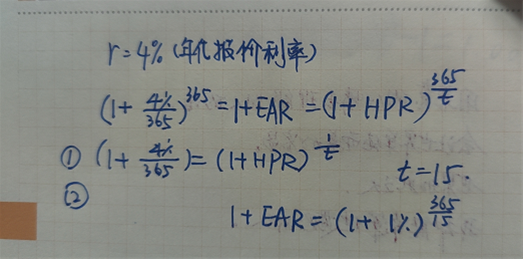 r=4% (年化报价利率)
(1+4%/365)^365=1+EAR=(1+HPR)^(365/t)
① (1+4%/365)=(1+HPR)^(1/t)
t=15.
②
1+EAR=(1+1%)^(365/15)